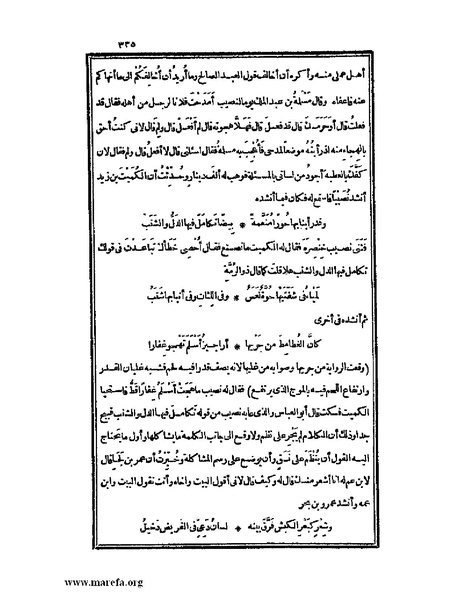 ٣٣٥
أهل عملي منه وأكره أن أخالف قول العبد الصالح وما أريد أن أخالفكم الى ما أنهاكم
عنه فاعفاه وقال مسلمة بن عبد الملك يوما لنصيب أمدحت فلانا لرجل من أهله فقال قد
فعلت قال أو حرمك قال قد فعل قال فهلا هجوته قال لم أفعل قال ولم قال لانى كنت أحق
بالهجاء منه اذ رأيته موضعا لمدحى فأعجب به مسلمة فقال اسئلنى قال لا أفعل قال ولم قال لان
كفك بالعطية أجود من لسانى بالمسئلة فوهب له ألف دينار وحدثت أن الكميت بن زيد
أنشد نصيبا فاستمع له فكان فيما أنشده
وقد رأينا بها حورا منعمة * بيضا تكامل فيها الدل والشنب
فثنى نصيب خنصره فقال له الكميت ما تصنع فقال أحصى خطأك تباعدت فى قولك
تكامل فيها الدل والشنب هلا قلت كما قال ذو الرمة
لمياء فى شفتيها حوة لعس * وفى اللثات وفى أنيابها شنب
ثم أنشده فى أخرى
كأن الغطامط من جريها * أراجيز أسلم تهجو غفارا
(وقعت الرواية من جريها وصوابه من غليها لانه يصف قدرا فيه لحم فشبه غليان القدر
وارتفاع اللحم فيه بالموج الذى يرتفع) فقال له نصيب ما هجت أسلم غفارا قط فاستحيا
الكميت فسكت قال أبو العباس والذى عابه نصيب من قوله تكامل فيها الدل والشنب قبيح
جدا وذلك أن الكلام لم يجر على نظم ولا وقع الى جانب الكلمة ما يشاكلها وأول ما يحتاج
اليه القول أن ينظم على نسق وأن يوضع على رسم المشاكلة وخبرت أن عمر بن لجا قال
لابن عم له أنا أشعر منك قال له وكيف قال لانى أقول البيت وأخاه وأنت تقول البيت وابن
عمه وأنشد عمرو بن بحر
وشعر كبعر الكبش فرق بينه * لسان دعى فى القريض دخيل
www.marefa.org